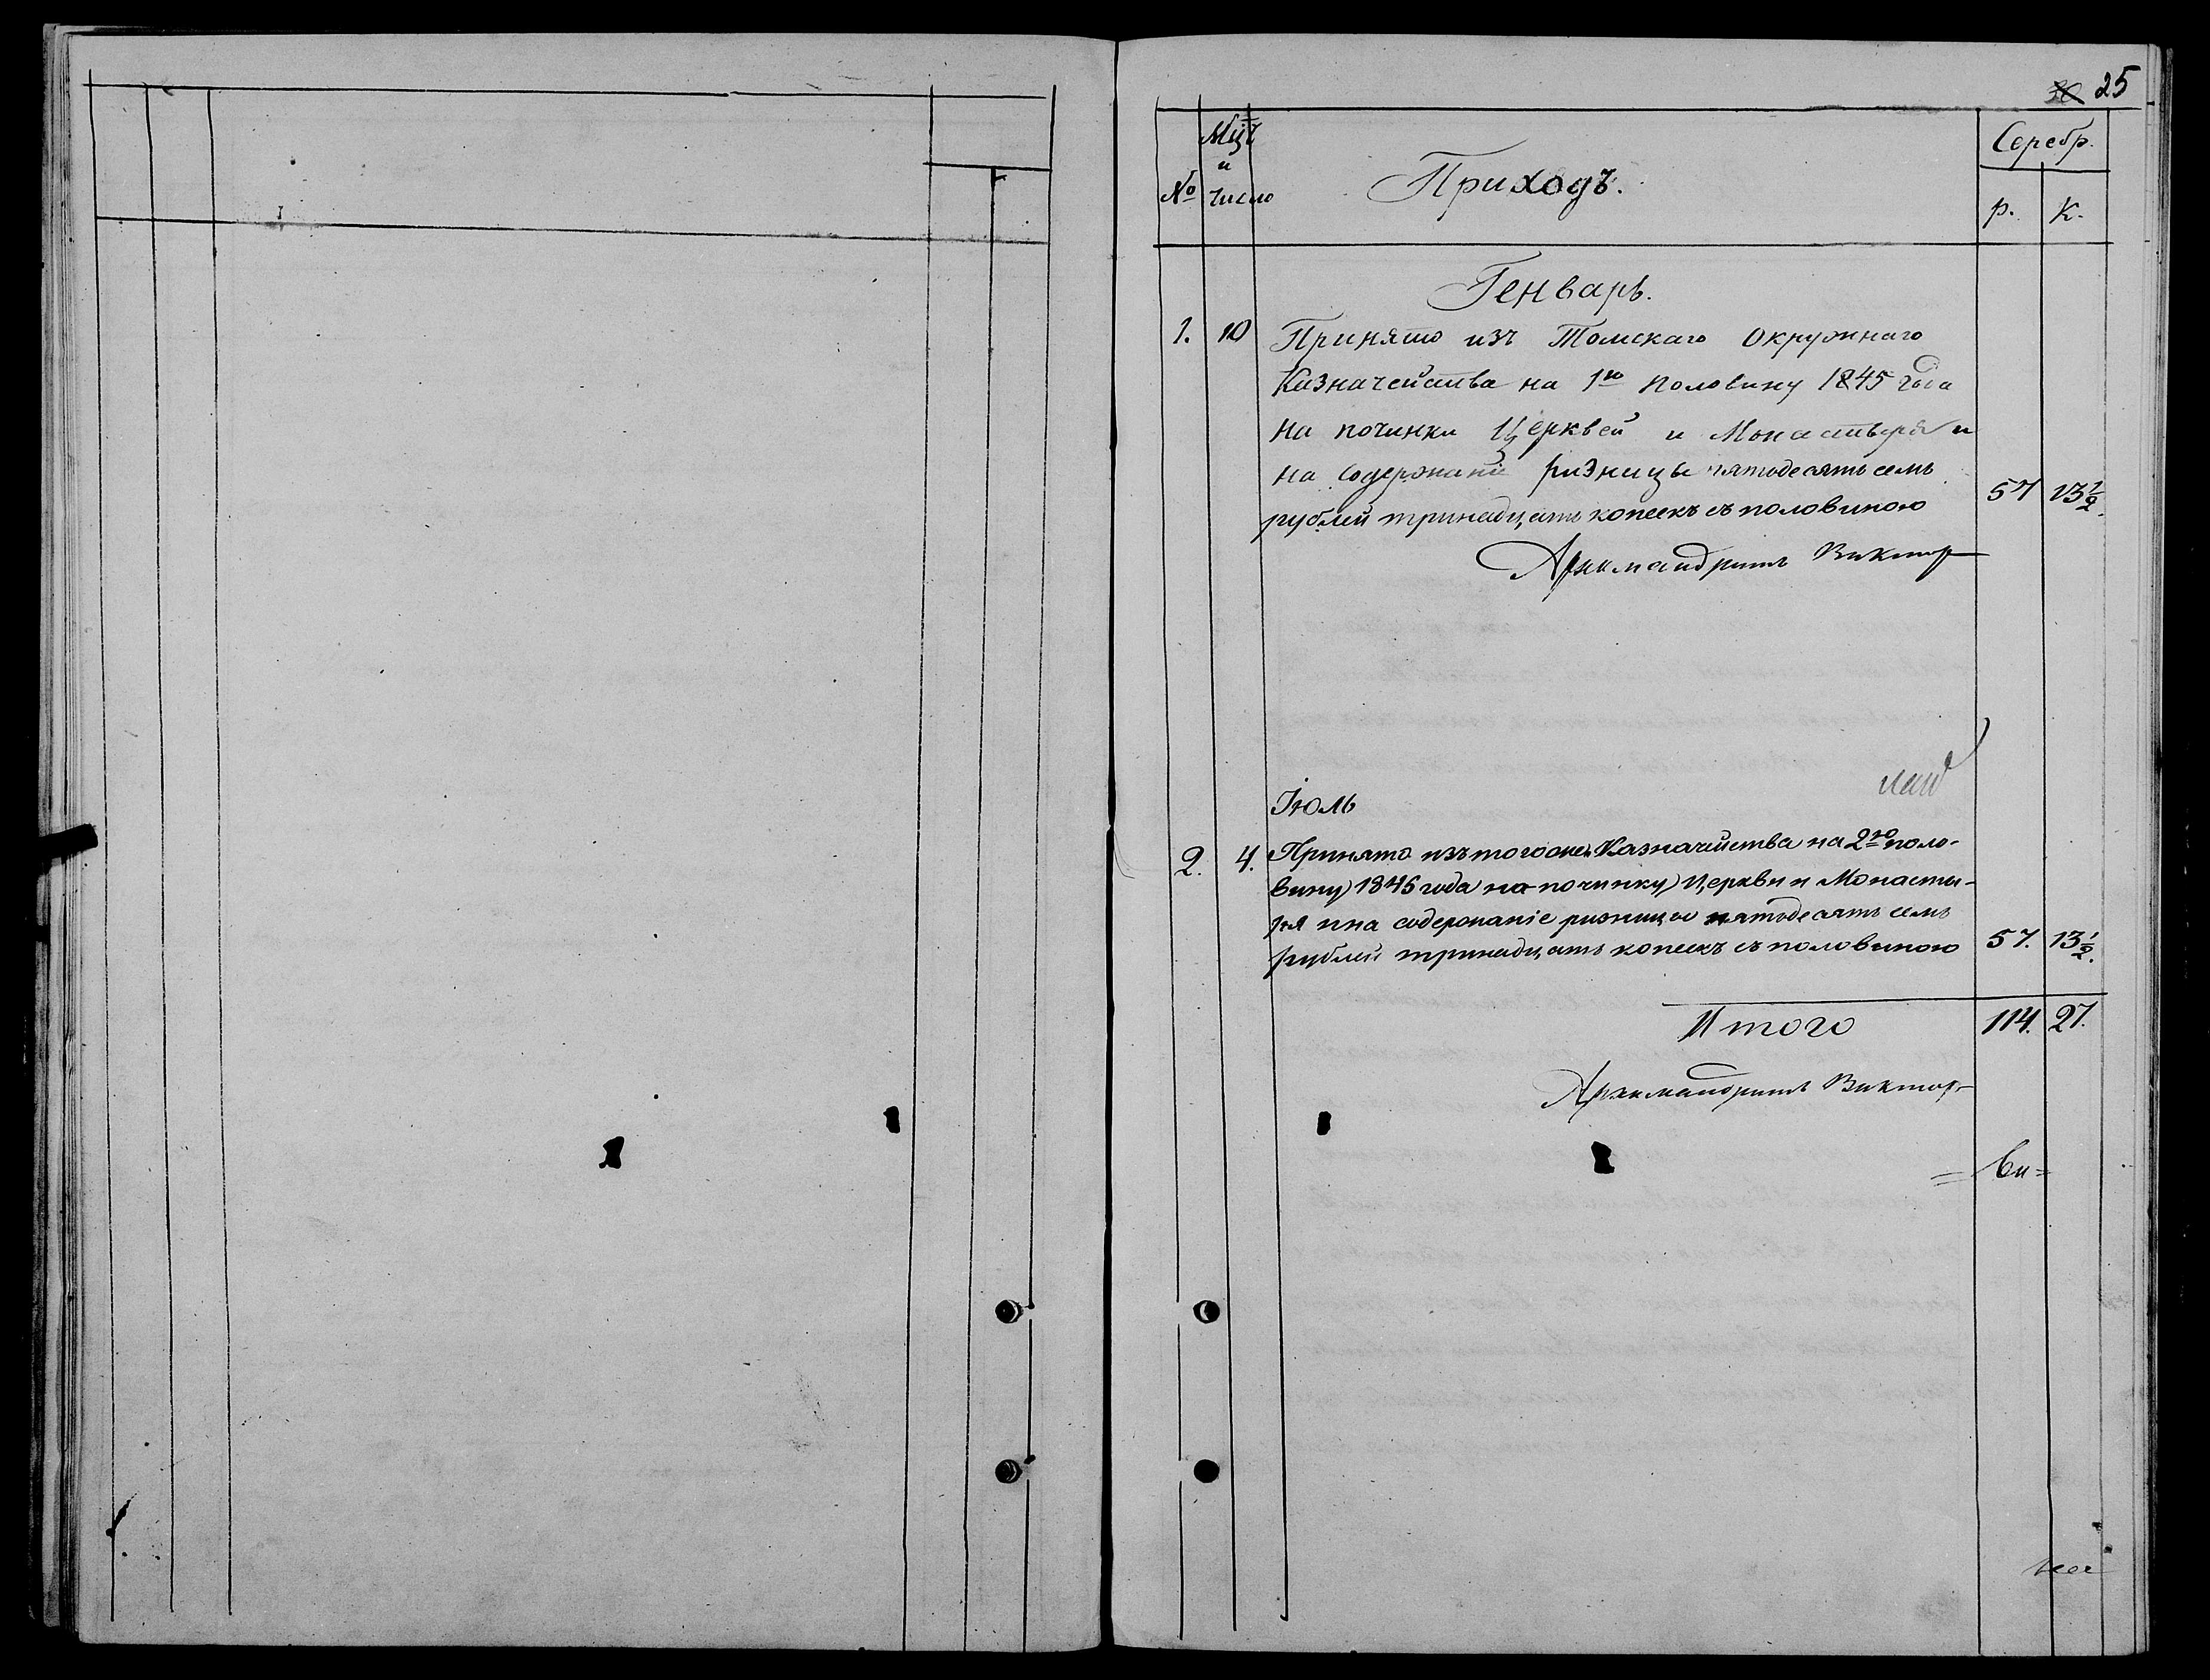 25
№
Мцъ
и
число
Приходъ.
Серебр.
р. к.
Генварь.
1. 10 Принято изъ Томскаго Окружнаго
Казначейства на 1ю половину 1845 года
на починки Церквей и Монастыря и
на содержаніе ризницы пятьдесять семь
рублей тринадцать копеекъ съ половиною 57 13 1/2.
Архимандритъ Виктор
Іюль
2. 4. Принято изъ тогоже Казначейства на 2ю поло-
вину 1845 года на починку Церкви и Монасты-
ря и на содержаніе ризницы пятьдесятъ семь
рублей тринадцать копеекъ съ половиною 57. 13 1/2.
Итого 114. 27.
Архимандритъ Виктор